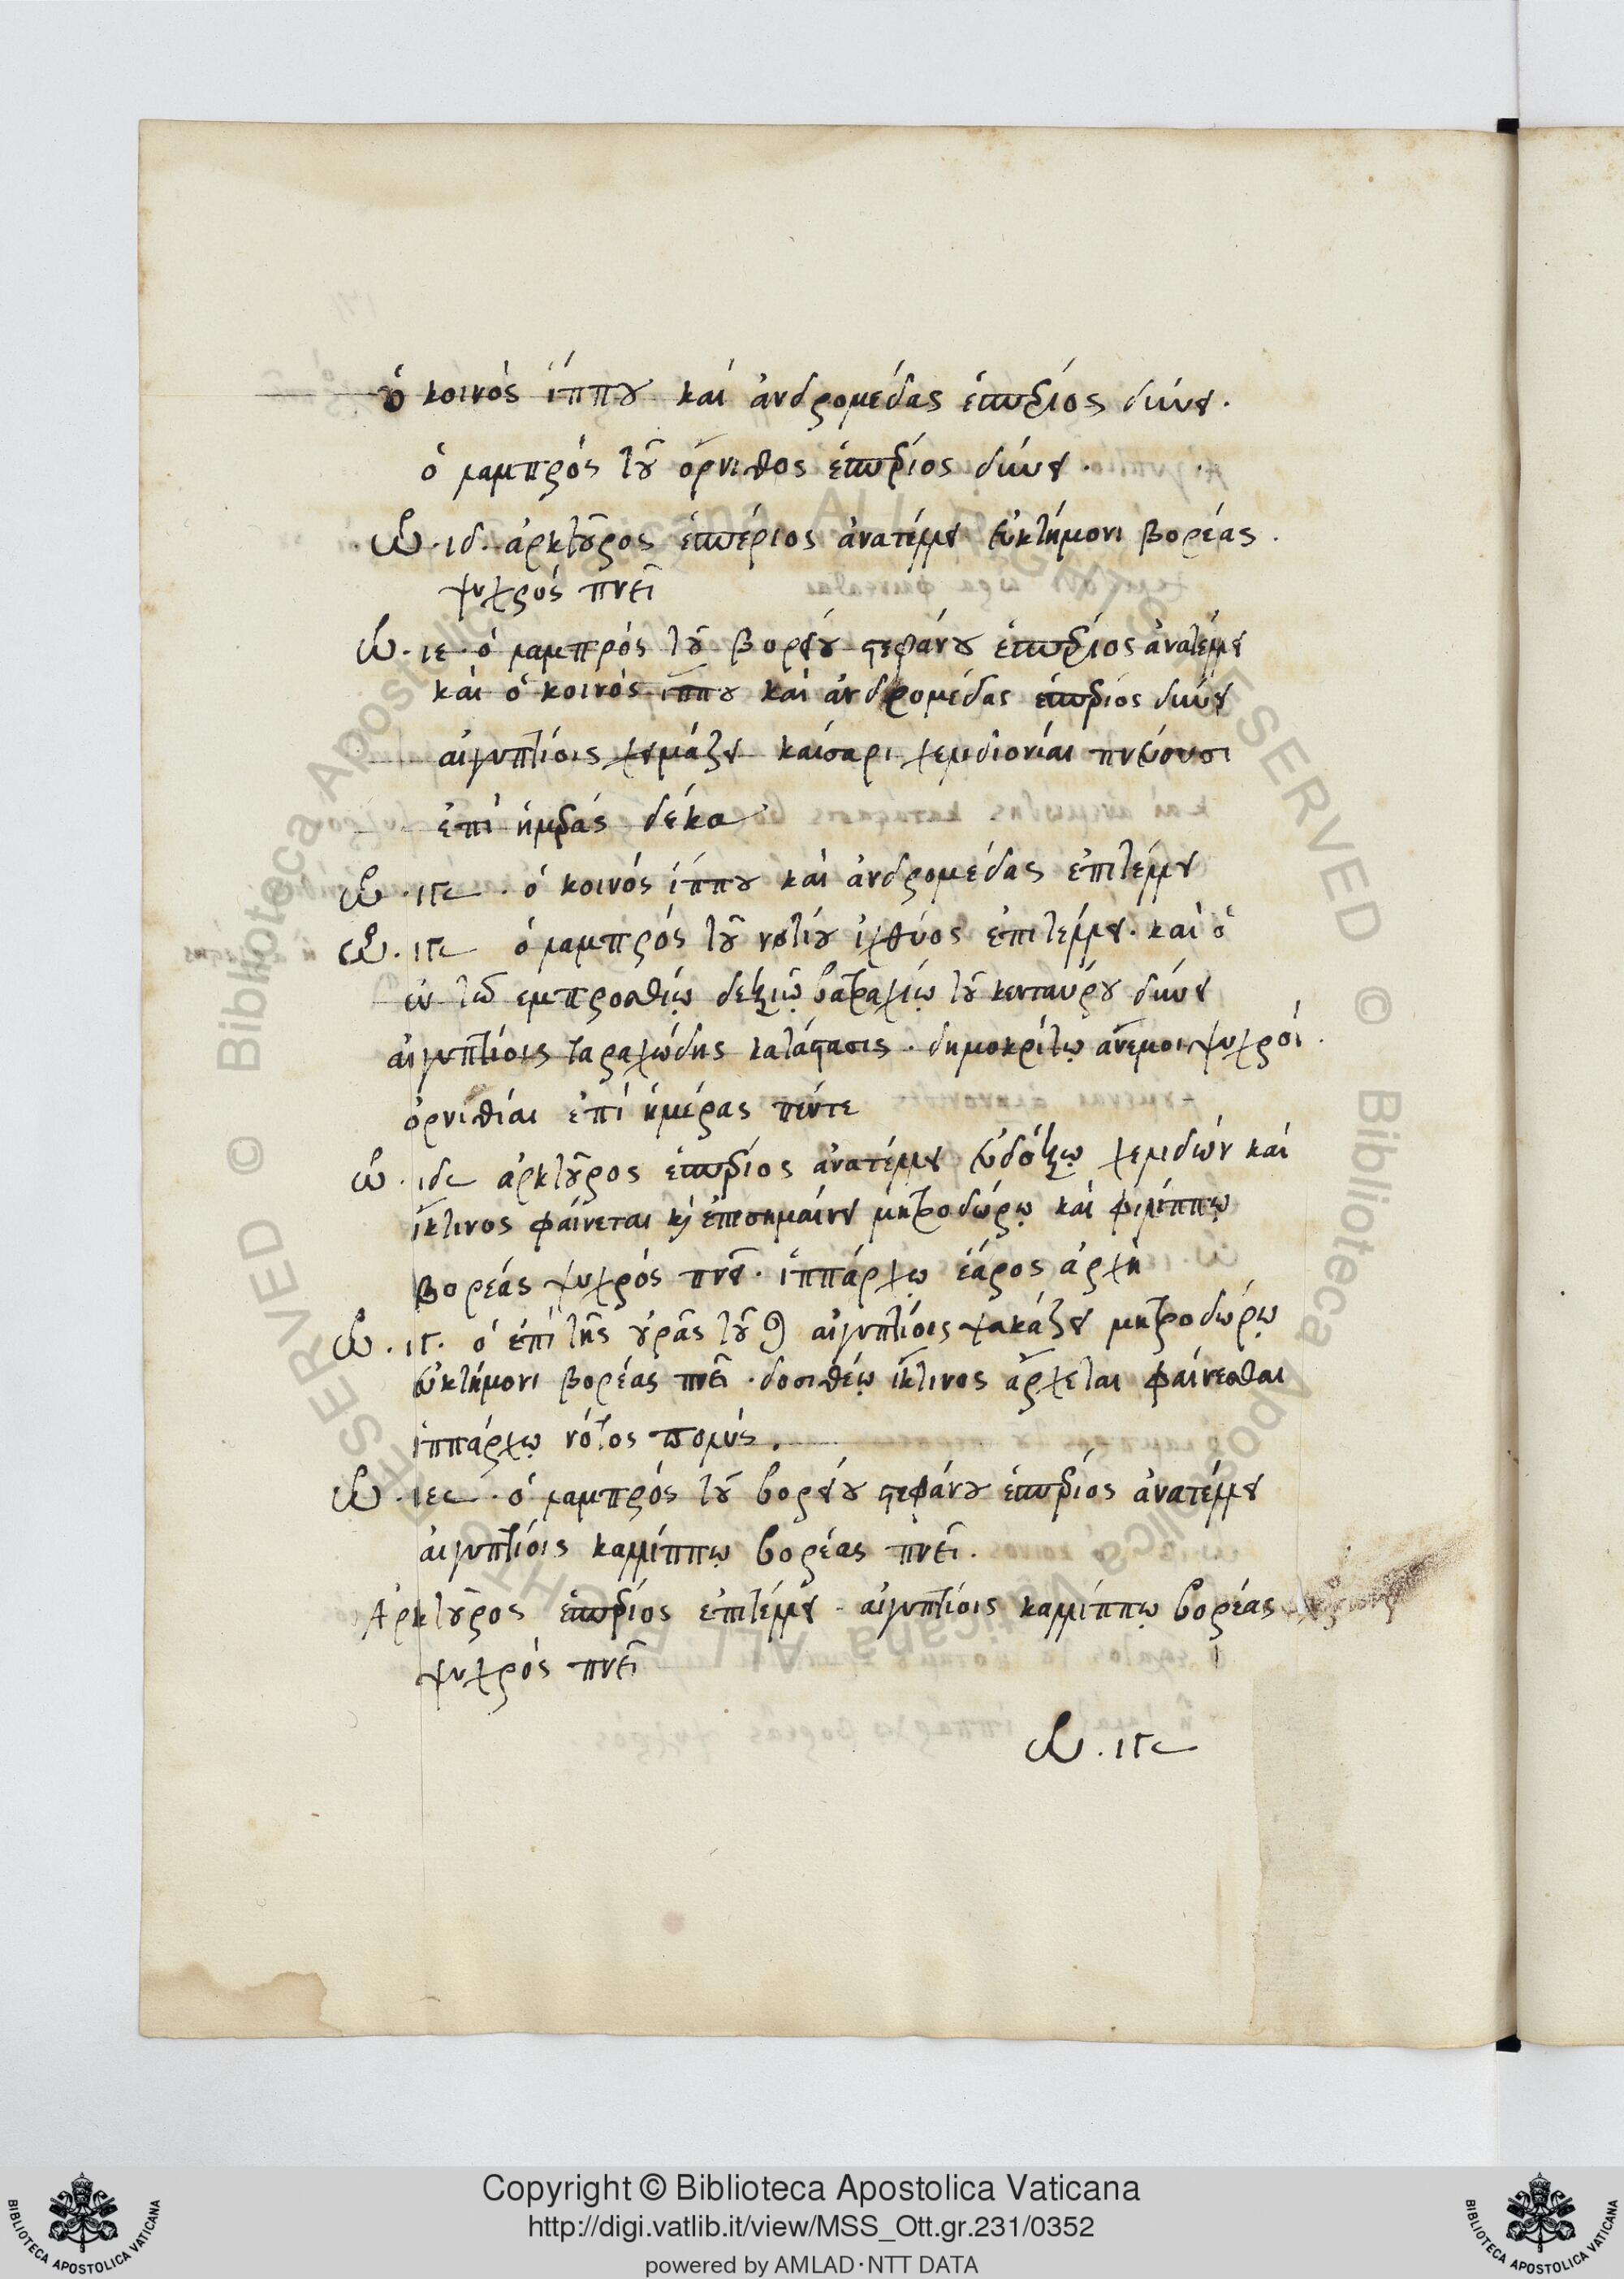 ὁ κοινὸς ἵππου καὶ ἀνδρομέδας ἑσπέριος δύνει.
ὁ λαμπρὸς τοῦ ὄρνιθος ἑσπέριος δύνει.
ὡρ. ιδ. ἀρκτοῦρος ἑσπέριος ἀνατέλλει εὐκτήμονι βορέας.
ψυχρὸς πνεῖ
ὡρ. ιε. ὁ λαμπρὸς τοῦ βορείου στεφάνου ἑσπέριος ἀνατέλλει
καὶ ὁ κοινὸς ἵππου καὶ ἀνδρομέδας ἑσπέριος δύνει
αἰγυπτίοις χειμάζει καίσαρι χελιδονίαι πνέουσι
ἐπὶ ἡμέρας δέκα
ὡρ. ιγ ὁ κοινὸς ἵππου καὶ ἀνδρομέδας ἐπιτέλλει
ὡρ. ιγ ὁ λαμπρὸς τοῦ νοτίου ἰχθύος ἐπιτέλλει. καὶ ὁ
ἐν τῷ ἐμπροσθίῳ δεξιῷ βατραχίῳ τοῦ κενταύρου δύνει
αἰγυπτίοις ταραχώδης κατάστασις. δημοκρίτῳ ἄνεμοι ψυχροί.
ὀρνιθίαι ἐπὶ ἡμέρας πέντε
ὡρ. ιδ ἀρκτοῦρος ἑσπέριος ἀνατέλλει εὐδόξῳ χελιδών καὶ
ἴκτινος φαίνεται καὶ ἐπισημαίνει μητροδώρῳ καὶ φιλίππῳ
βορέας ψυχρὸς πνεῖ. ἱππάρχῳ ἔαρος ἀρχή
ὡρ. ιγ. ὁ ἐπὶ τῆς οὐρᾶς τοῦ ♌ αἰγυπτίοις ψακάζει μητροδώρῳ
εὐκτήμονι βορέας πνεῖ. δοσιθέῳ ἴκτινος ἄρχεται φαίνεσθαι
ἱππάρχῳ νότος πολύς.
ὡρ. ιε. ὁ λαμπρὸς τοῦ βορείου στεφάνου ἑσπέριος ἀνατέλλει
αἰγυπτίοις καλλίππῳ βορέας πνεῖ.
Ἀρκτοῦρος ἑσπέριος ἐπιτέλλει. αἰγυπτίοις καλλίππῳ βορέας
ψυχρὸς πνεῖ
ὡρ. ιγ
Copyright © Biblioteca Apostolica Vaticana
http://digi.vatlib.it/view/MSS_Ott.gr.231/0352
powered by AMLAD·NTT DATA
BIBLIOTECA APOSTOLICA VATICANA
BIBLIOTECA APOSTOLICA VATICANA